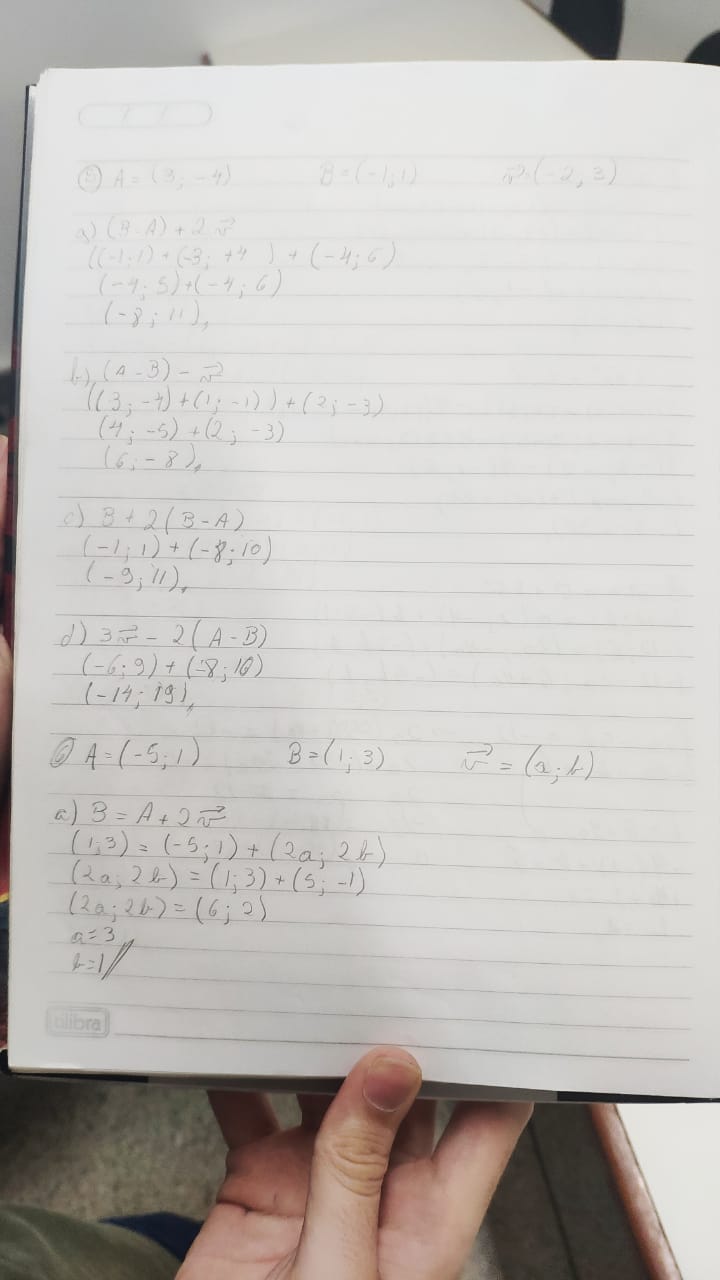 ⑤ A = (3; -4) B = (-1; 1) v⃗ = (-2, 3)
a) (B-A) + 2v⃗
((-1;1) + (-3; +4 ) + (-4; 6)
(-4; 5) + (-4; 6)
(-8; 11),,
b) (A-B) - v⃗
((3; -4) + (1; -1)) + (2; -3)
(4; -5) + (2; -3)
(6; -8),,
c) B + 2(B-A)
(-1; 1) + (-8; 10)
(-9; 11),,
d) 3v⃗ - 2(A-B)
(-6; 9) + (-8; 10)
(-14; 19),,
⑥ A = (-5; 1) B = (1; 3) v⃗ = (a; b)
a) B = A + 2v⃗
(1,3) = (-5; 1) + (2a; 2b)
(2a; 2b) = (1; 3) + (5; -1)
(2a; 2b) = (6; 2)
a=3
b=1//
tilibra